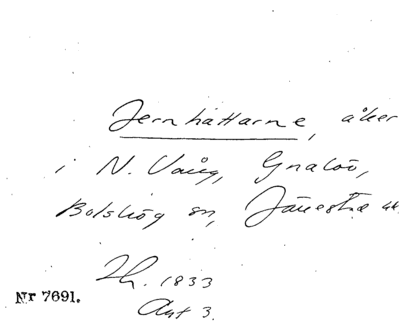 Jernhattarne, åker
i N. Vång, Gnalöv,
Bolshög sn, Järrestad
Lh. 1833
Akt 3.
Nr 7691.